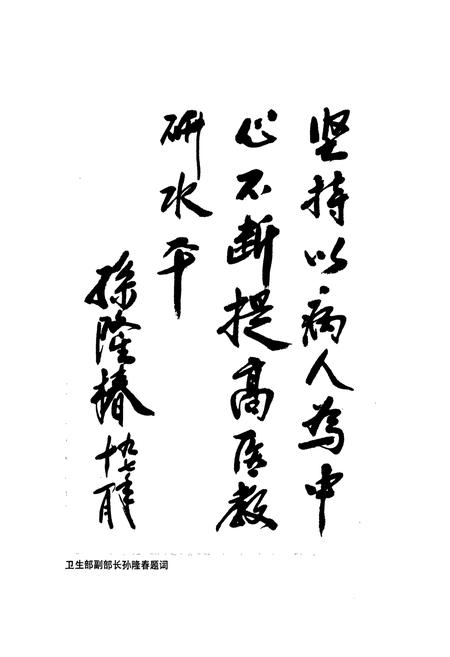 坚持以病人为中
心不断提高医教
研水平
孙隆椿
九七年
十月
卫生部副部长孙隆春题词